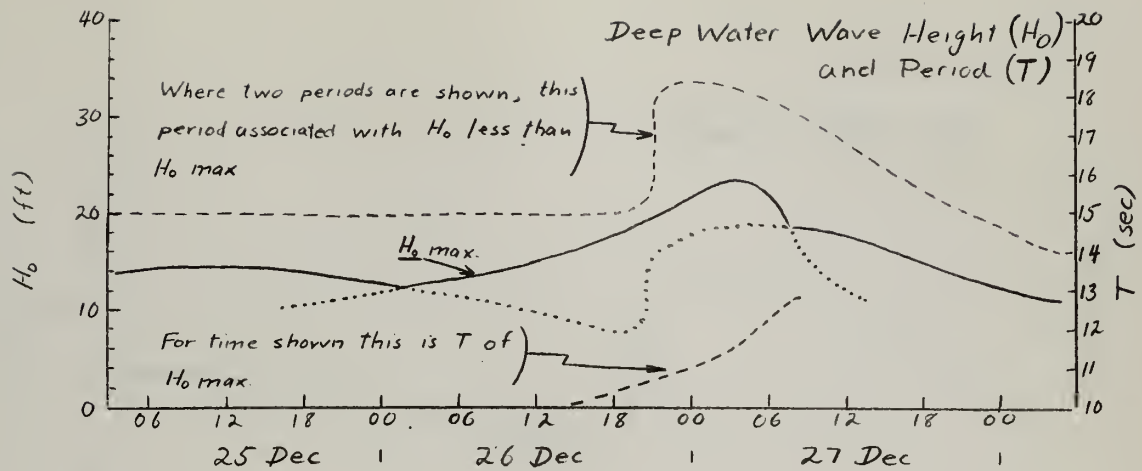 Deep Water Wave Height (Ho)
and Period (T)
Where two periods are shown, this
period associated with Ho less than
Ho max
Ho max.
For time shown this is T of
Ho max.
Ho (ft)
40
30
20
10
0
T (sec)
20
19
18
17
16
15
14
13
12
11
10
06 12 18 00 06 12 18 00 06 12 18 00
25 Dec 26 Dec 27 Dec